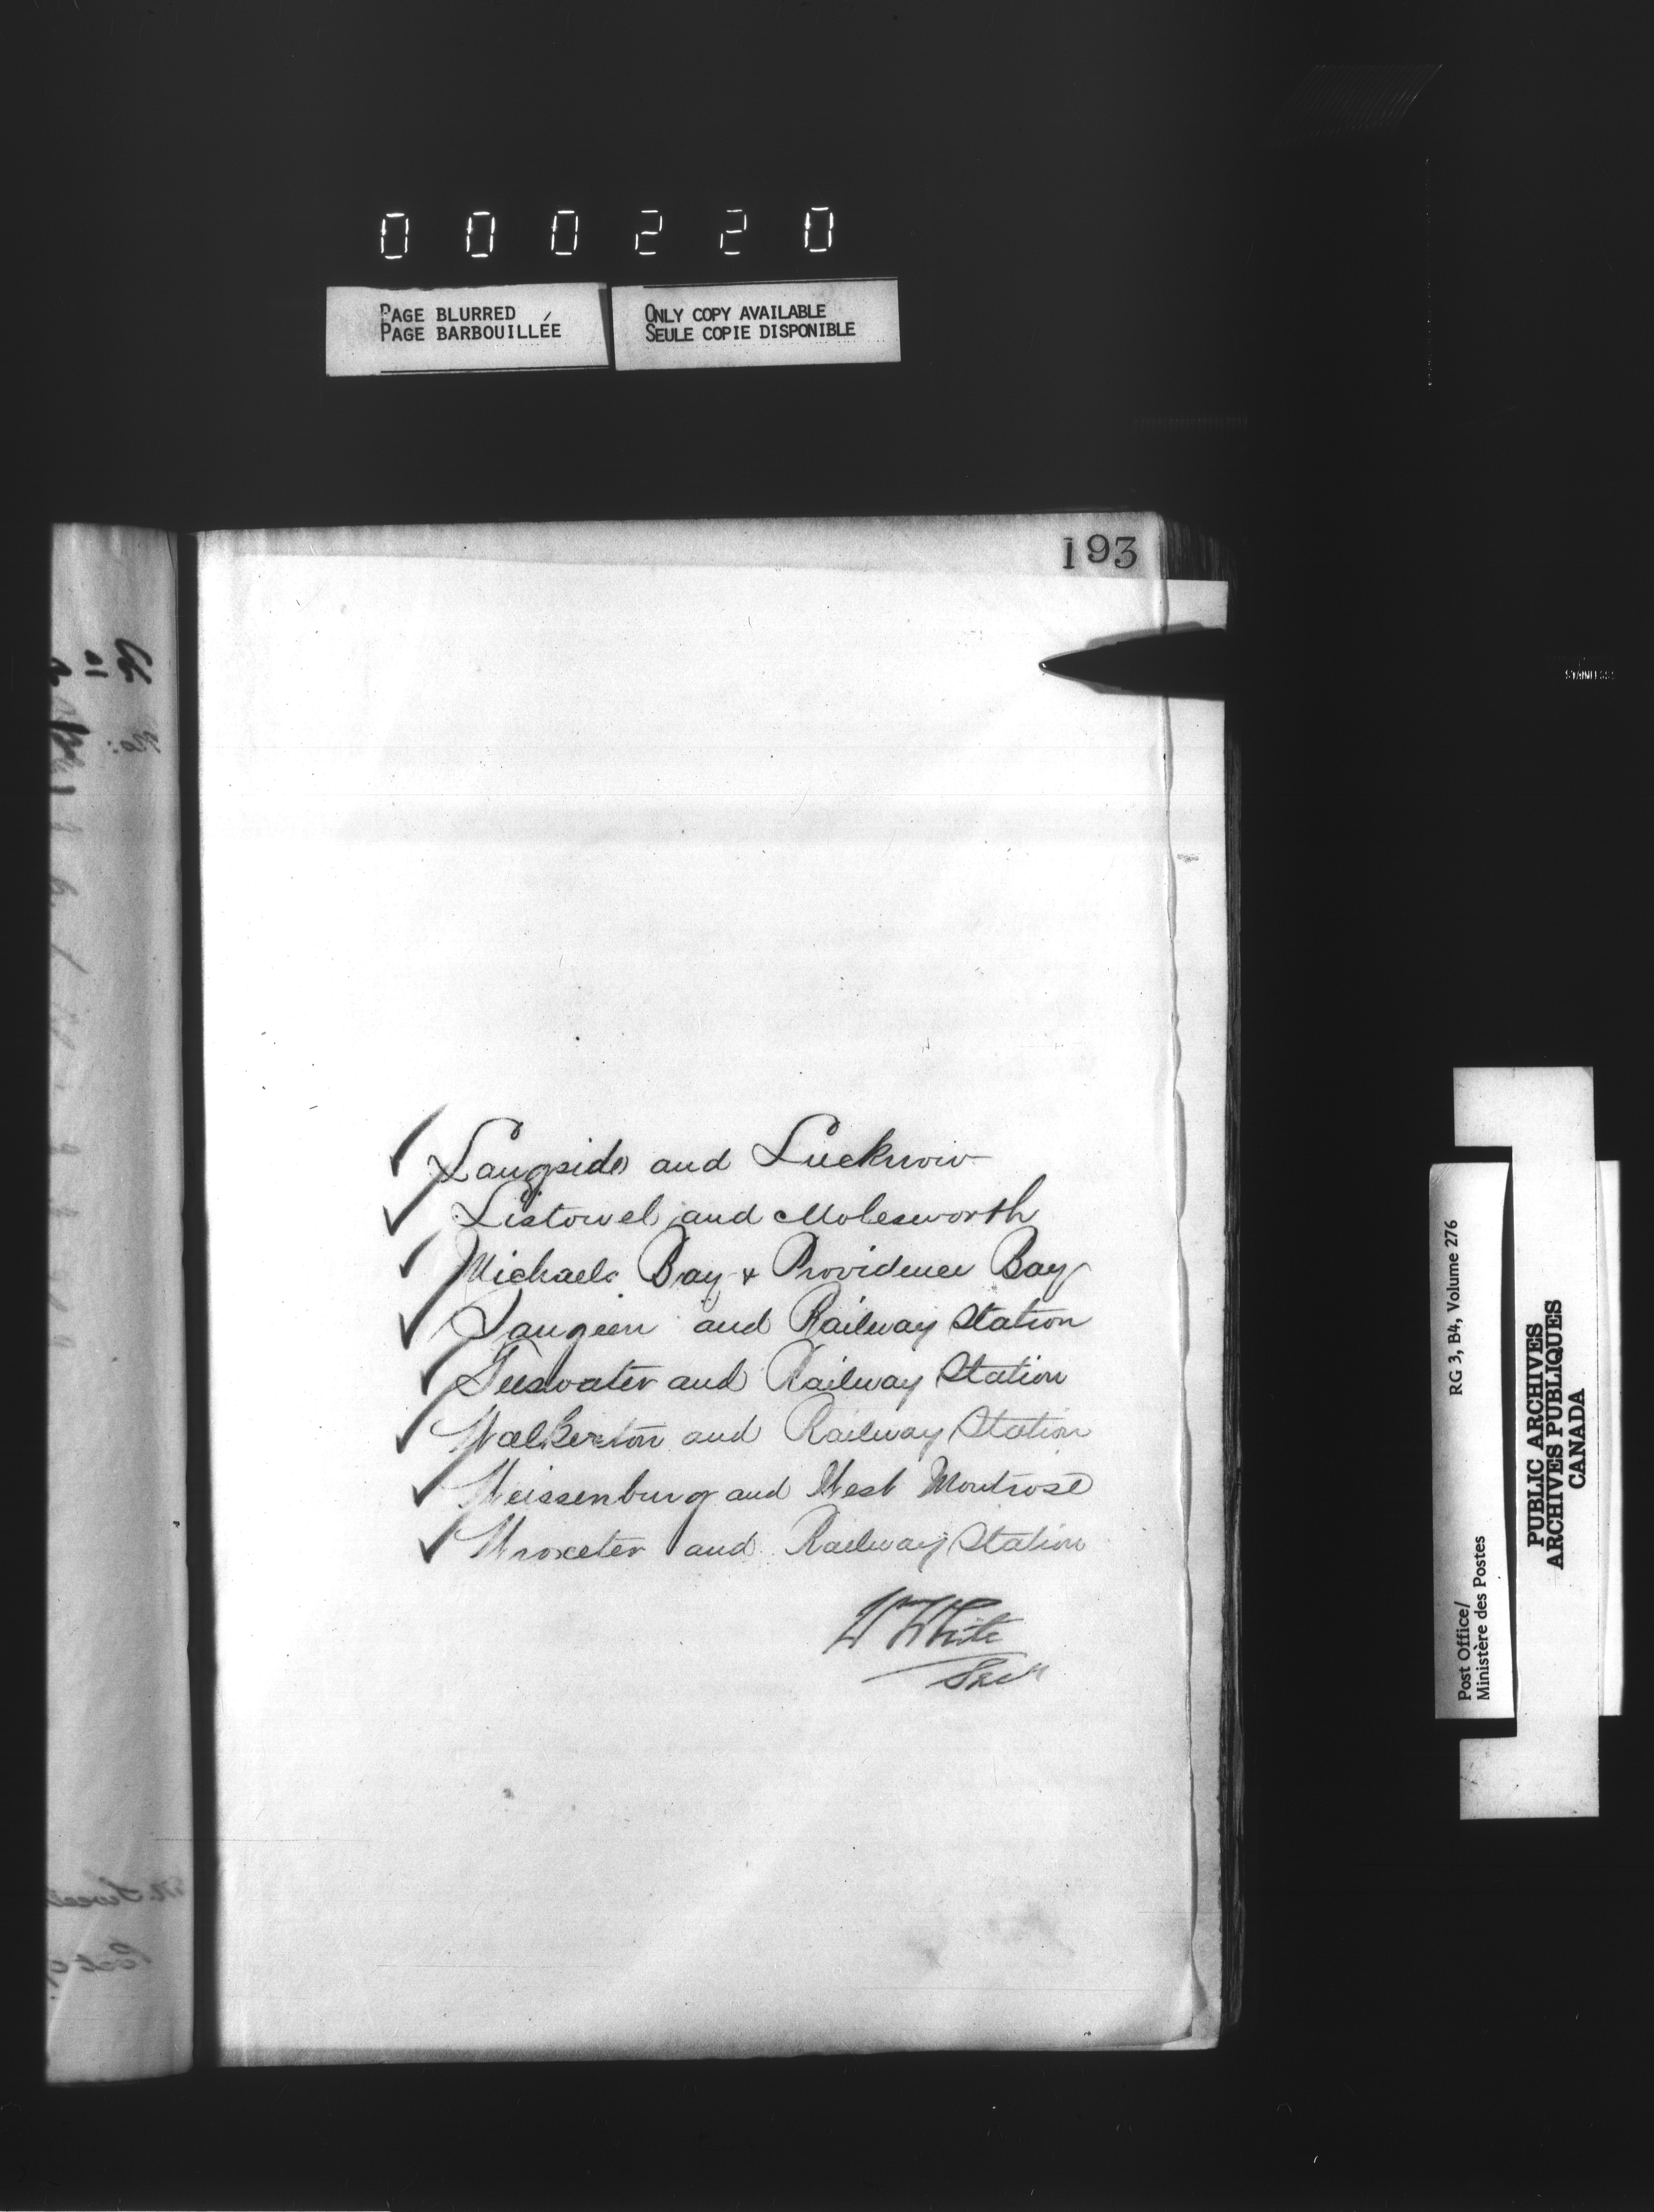 000220
PAGE BLURRED
PAGE BARBOUILLÉE
ONLY COPY AVAILABLE
SEULE COPIE DISPONIBLE
193
✓ Langside and Lucknow
✓ Listowel and Molesworth
✓ Michaels Bay & Providence Bay
✓ Saugeen and Railway Station
✓ Teeswater and Railway Station
✓ Walkerton and Railway Station
✓ Weissenburg and West Montrose
✓ Wroxeter and Railway Station
W White
Secy
Post Office/
Ministère des Postes
RG 3, B4, Volume 276
PUBLIC ARCHIVES
ARCHIVES PUBLIQUES
CANADA